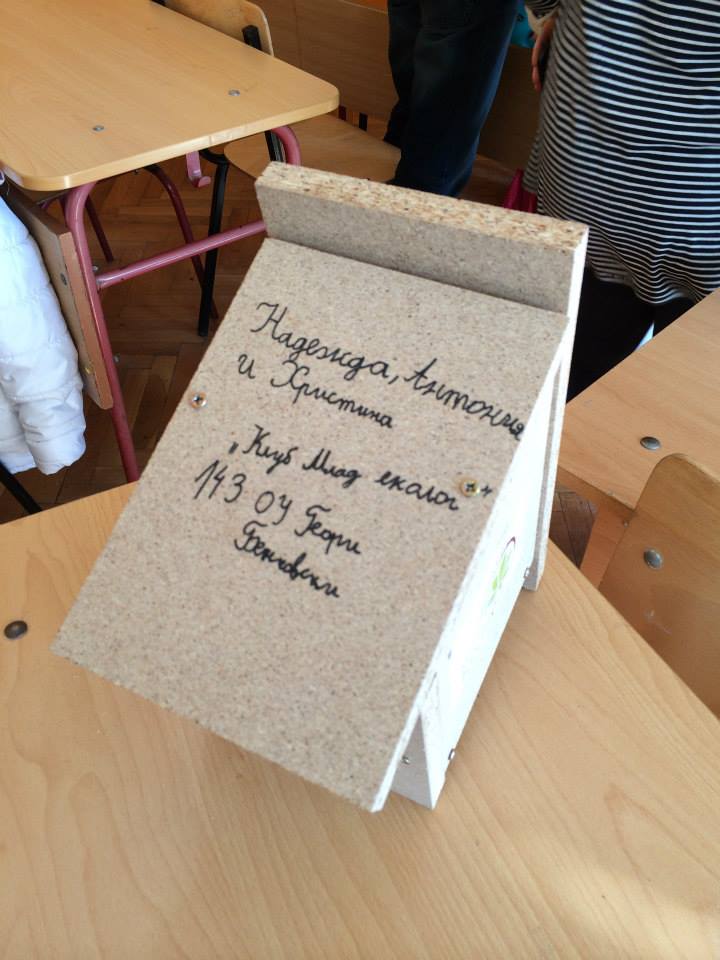 Надежда, Антония
и Христина
„Клуб Млад еколог"
143 ОУ Георги
Бенковски